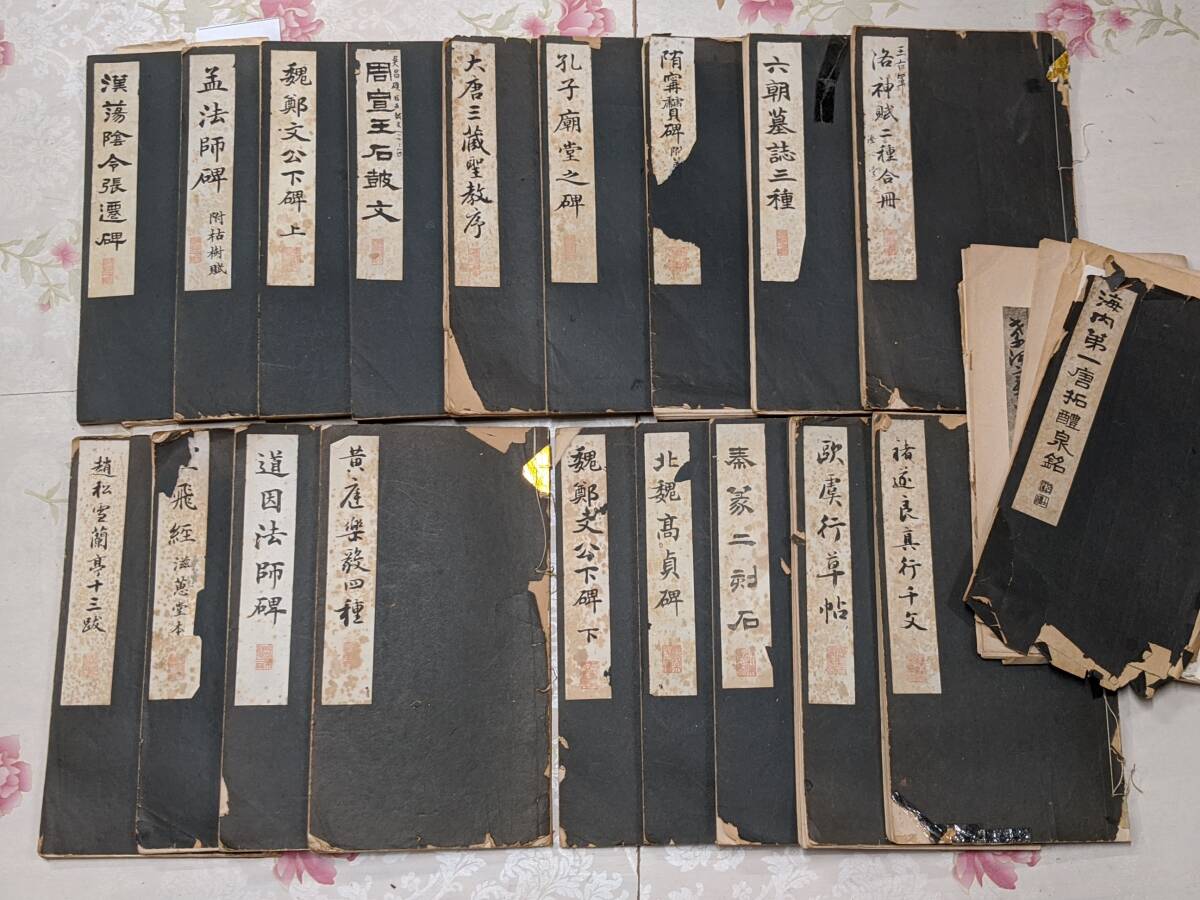 漢蕩陰令張遷碑
孟法師碑
附枯樹賦
魏鄭文公下碑 上
周宣王石皷文
大唐三藏聖教序
孔子廟堂之碑
隋甯贙碑
六朝墓誌三種
洛神賦二種合冊
海内第一唐拓醴泉銘
趙松雪蘭亭十三跋
飛經 滋蕙堂本
道因法師碑
黃庭樂毅四種
魏鄭文公下碑 下
北魏高貞碑
秦篆二刻石
歐虞行草帖
褚遂良真行千文